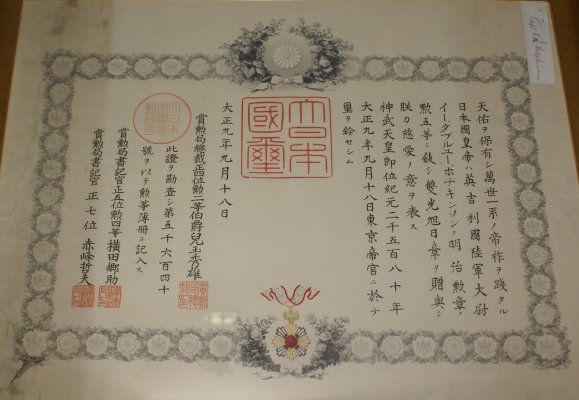 天佑ヲ保有シ萬世一系ノ帝祚ヲ踐タル
日本國皇帝ハ英吉利國陸軍大尉
イー、ダブルユー、ホチキンソンヲ明治勲章ノ
勲五等ニ敍シ雙光旭日章ヲ贈與シ
朕カ慈愛ノ意ヲ表ス
神武天皇即位紀元二千五百八十年
大正九年九月十八日東京帝宮ニ於テ
璽ヲ鈐セシム
大日本
國璽
大正九年九月十八日
賞勲局總裁正四位勲二等伯爵兒玉秀雄
此證ヲ勘査シ第五千六百四十
號ヲ以テ勲等簿册ニ記入ス
賞勲局書記官正五位勲四等横田郷助
賞勲局書記官正七位赤峰哲夫